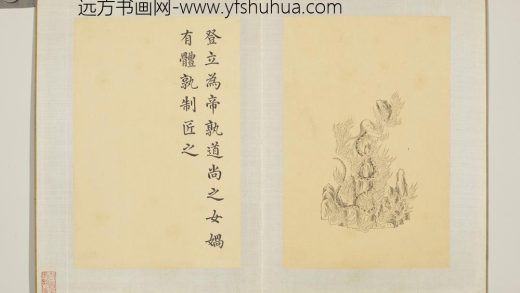 远方书画网-www.yfshuhua.com
登立為帝孰道尚之女媧
有體孰制匠之